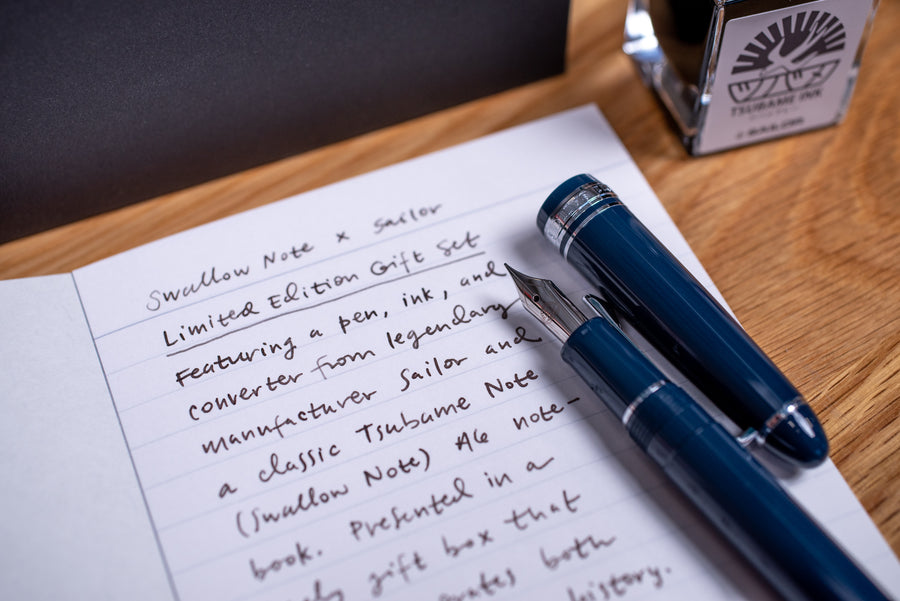 Swallow Note x Sailor
Limited Edition Gift Set
Featuring a pen, ink, and
converter from legendary
manufacturer Sailor and
a classic Tsubame Note
(Swallow Note) A6 note-
book. Presented in a
gift box that
both
history.
TSUBAME INK